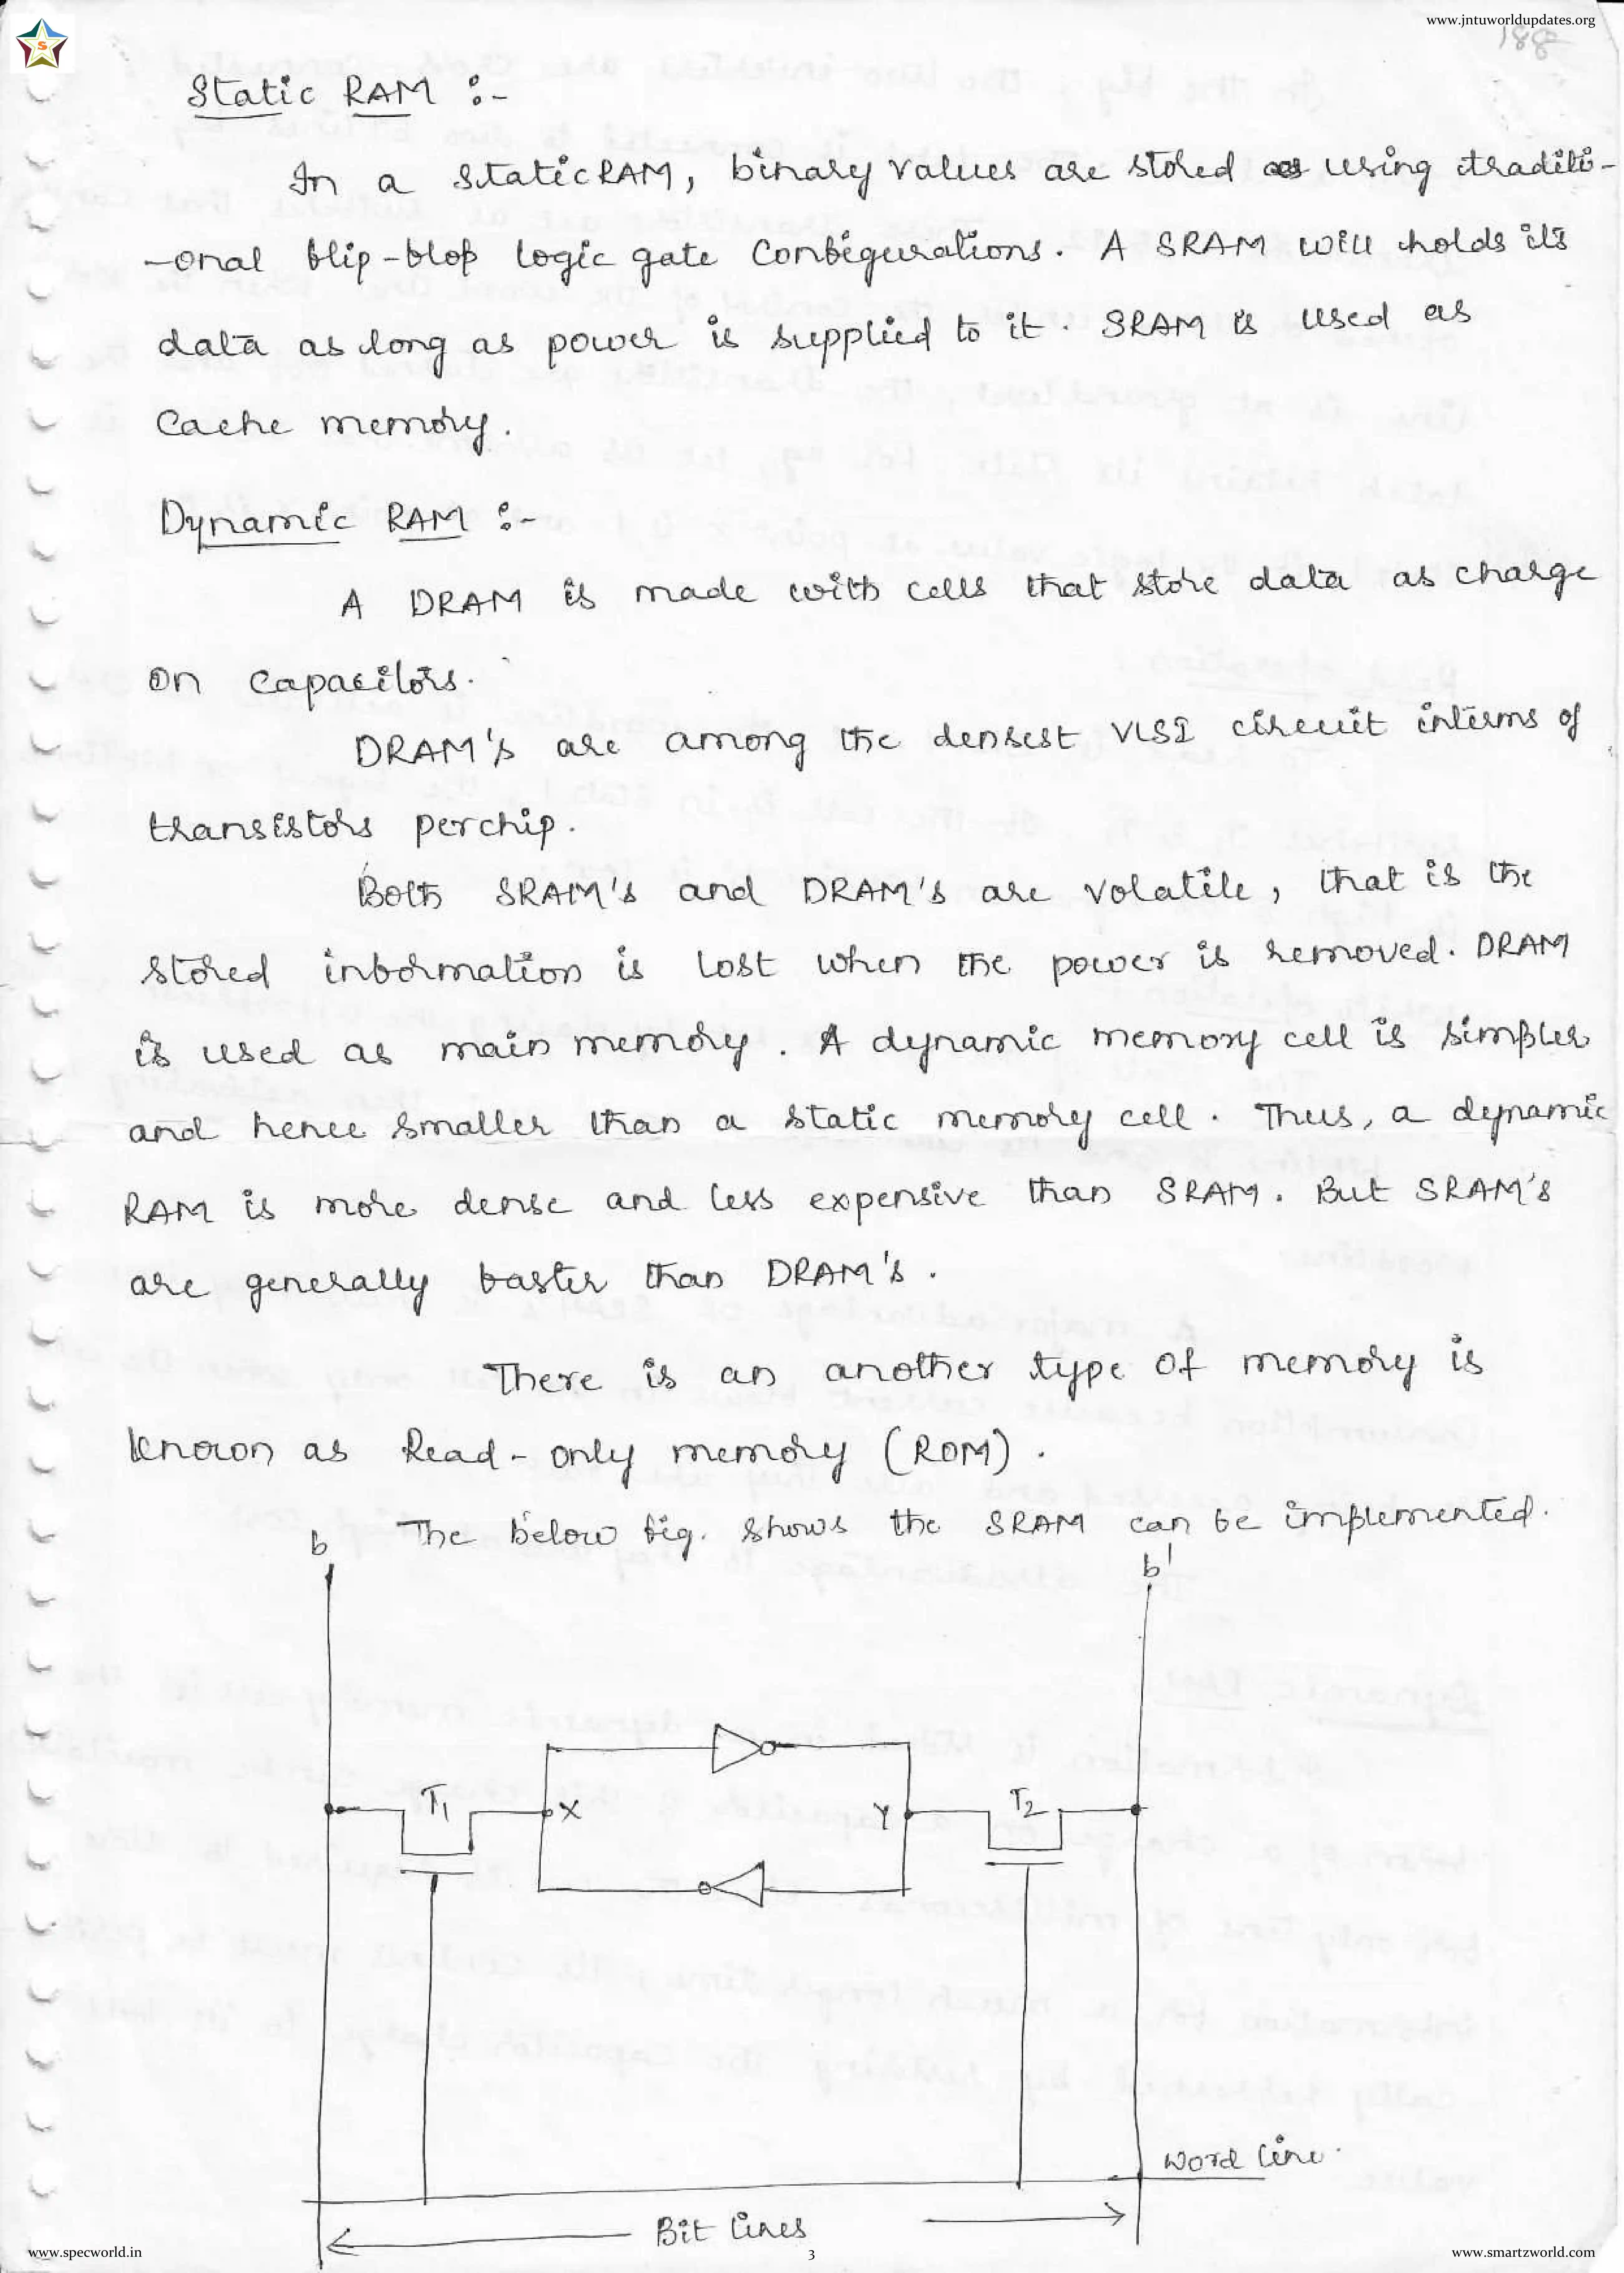 www.jntuworldupdates.org
188
S
Static RAM :-
In a StaticRAM, binary values are stored as using traditi-
-onal flip-flop logic gate Configurations. A SRAM will holds its
data as long as power is supplied to it. SRAM is used as
Cache memory.
Dynamic RAM :-
A DRAM is made with cells that store data as charge
on capacitors.
DRAM's are among the densest VLSI circuit interms of
transistors perchip.
Both SRAM's and DRAM's are volatile, that is the
stored information is lost when the power is removed. DRAM
is used as main memory. A dynamic memory cell is simpler
and hence smaller than a static memory cell. Thus, a dynamic
RAM is more dense and less expensive than SRAM. But SRAM's
are generally faster than DRAM's.
There is an another type of memory is
known as Read-only memory (ROM).
The below fig. shows the SRAM can be implemented.
b
b'
T1
X
Y
T2
word line.
Bit lines
www.specworld.in
3
www.smartzworld.com